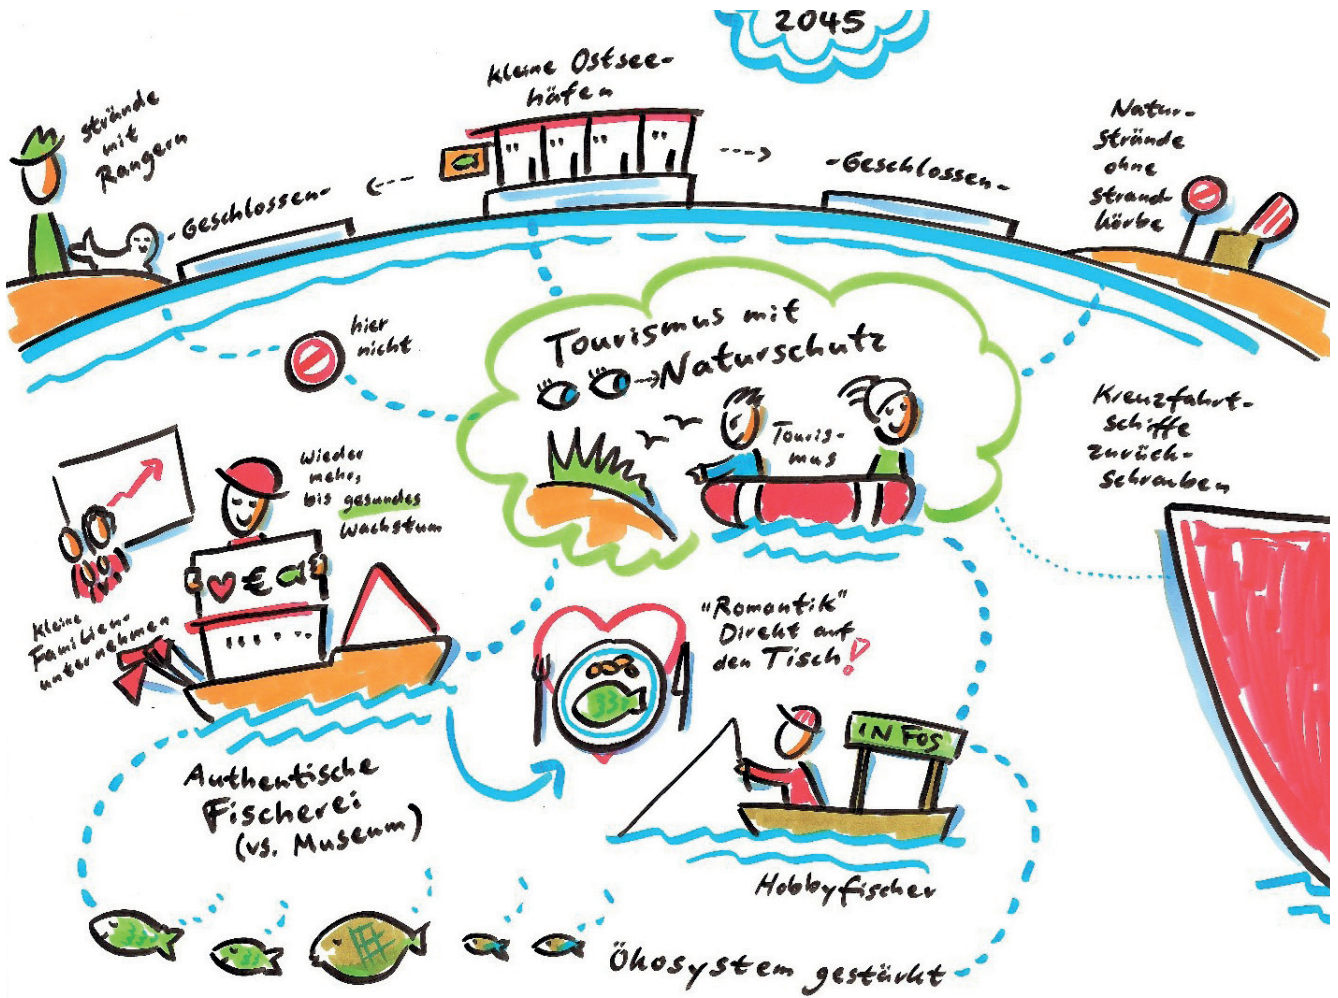 2045
kleine Ostsee-
häfen
Strände
mit
Rangern
-Geschlossen-
-Geschlossen-
Natur-
strände
ohne
strand-
körbe
hier
nicht
Tourismus mit
Naturschutz
Touris-
mus
Kreuzfahrt-
schiffe
zurück-
schrauben
wieder
mehr,
bis gesundes
Wachstum
€
kleine
Familien-
unternehmen
"Romantik"
Direkt auf
den Tisch!
INFOS
Authentische
Fischerei
(vs. Museum)
Hobbyfischer
Ökosystem gestärkt